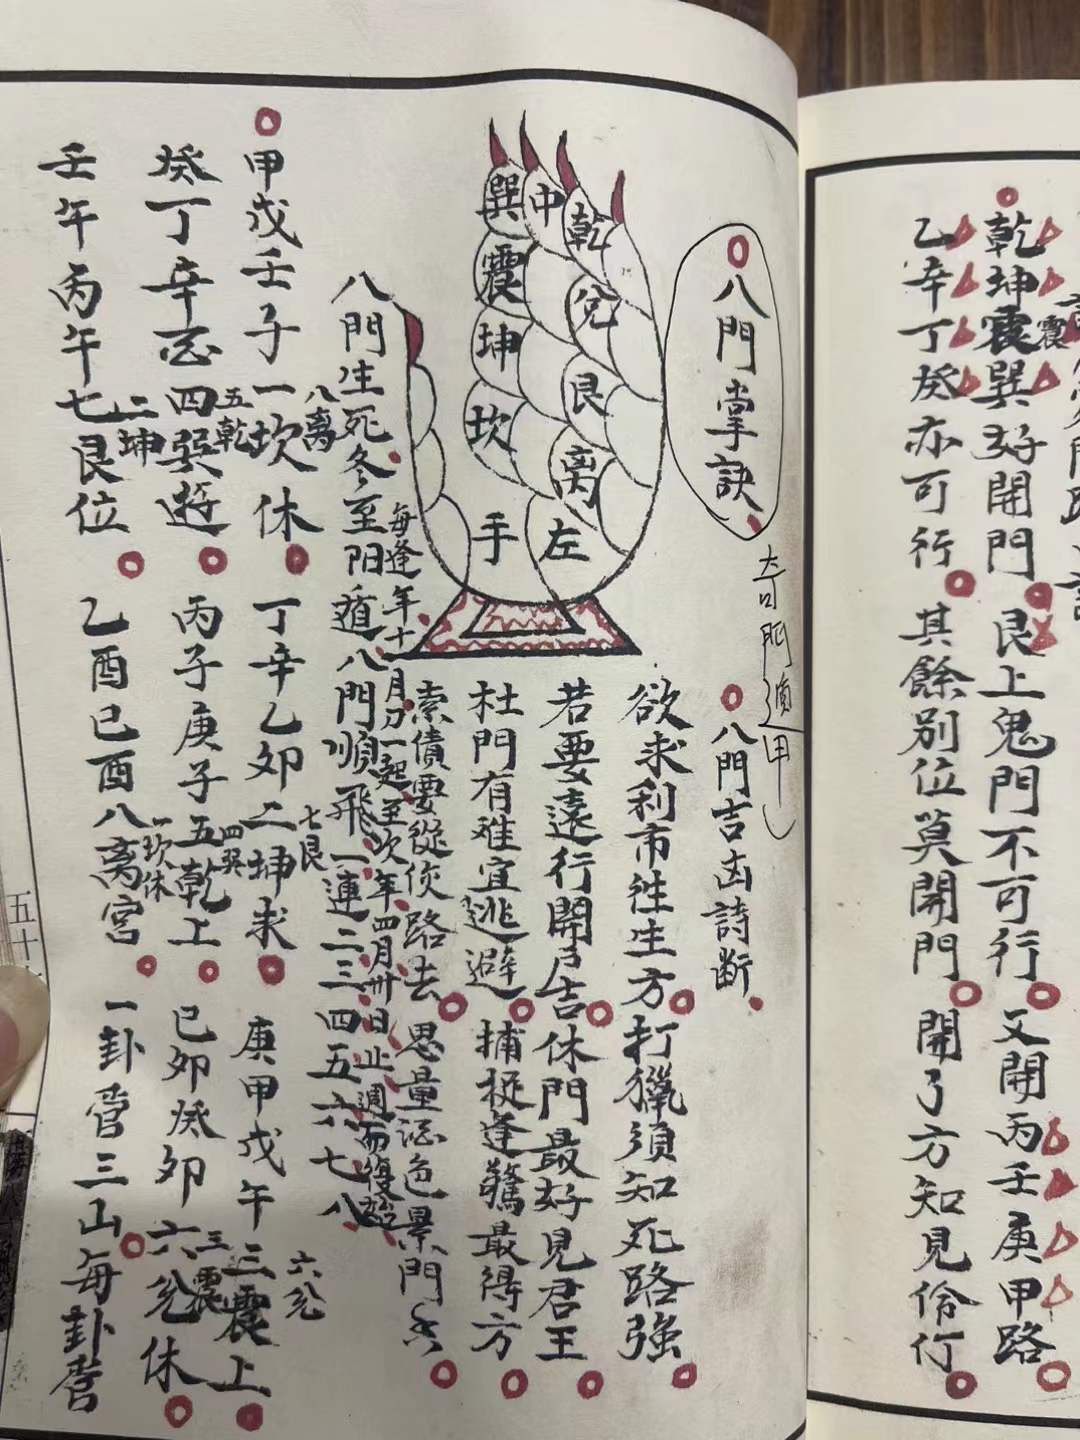 乾坤震巽好開門
艮上鬼門不可行
又開丙壬庚甲路
震
乙辛丁癸亦可行
其餘別位莫開門
開了方知見伶仃
八門掌訣
奇門遁甲
巽
中
乾
震
兌
坤
艮
坎
离
手
左
八門吉凶詩断
欲求利市往生方
打獵須知死路強
若要遠行開門吉
休門最好見君王
杜門有难宜逃避
捕捉逢驚最得方
索債要從傷路去
思量酒色景門
每逢年十一月初一起至次年四月卅日止週而復始
八門生死冬至阳遁八門順飛一連二三四五六七八
甲戊壬子一坎休
八离
丁辛乙卯二坤求
七艮
庚甲戊午三震上
六兌
癸丁辛酉四巽遊
五乾
丙子庚子五乾上
四巽
己卯癸卯六兌休
三震
壬午丙午七艮位
二坤
乙酉己酉八离宮
一坎休
一卦管三山每卦管
五十